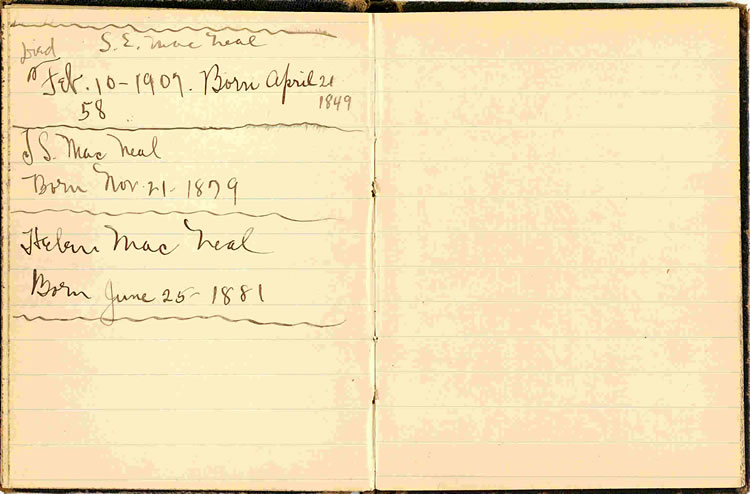 S. E. Mac Neal
Died
Feb. 10 - 1907. Born April 21
1849
58
J S. Mac Neal
Born Nov. 21 - 1879
Helen Mac Neal
Born June 25 - 1881